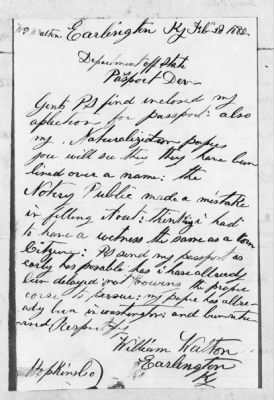 Wm Walton. Earlington Ky Feb 28 1882
Department off State
Passport Dev
Gents Ps find inclosed my
aplection for passport: also
my Naturalization papes
you will see this they have been
lined over a name: the
Notery Public made a mistake
in filling it out: thinking i had
to have a witness the same as a born
Citizeng: Ps send my passport as
early has posable has i have allready
been delayed not nowing the proper
corse to persue: my papre has allre-
ady been in washington: and been
and Respectfy
William Walton
Earlington
Ky
Hopkins Co